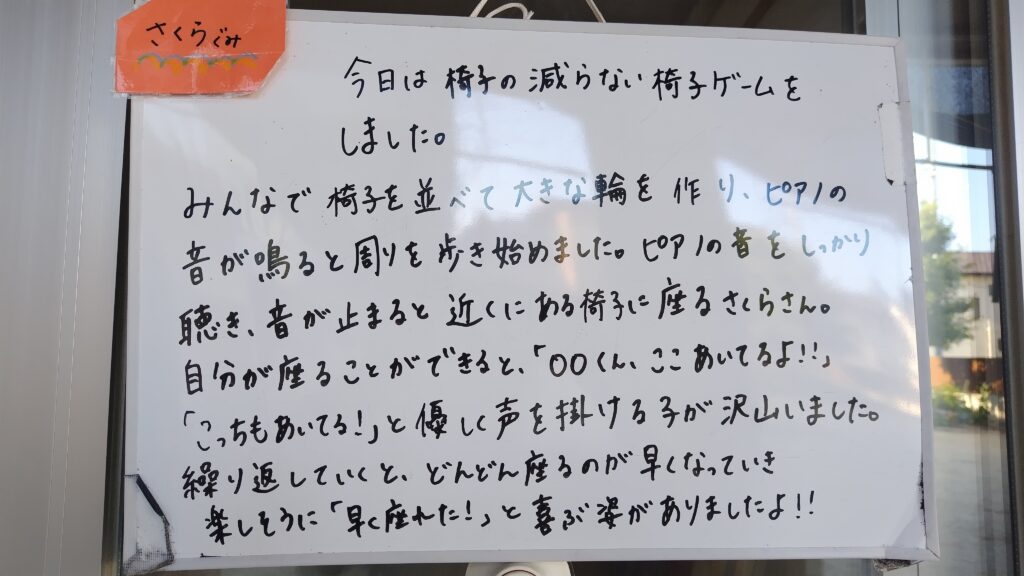 さくらぐみ
今日は椅子の減らない椅子ゲームを
しました。
みんなで椅子を並べて大きな輪を作り、ピアノの
音が鳴ると周りを歩き始めました。ピアノの音をしっかり
聴き、音が止まると近くにある椅子に座るさくらさん。
自分が座ることができると、「○○くん、ここあいてるよ!!」
「こっちもあいてる!」と優しく声を掛ける子が沢山いました。
繰り返していくと、どんどん座るのが早くなっていき
楽しそうに「早く座れた!」と喜ぶ姿がありましたよ!!